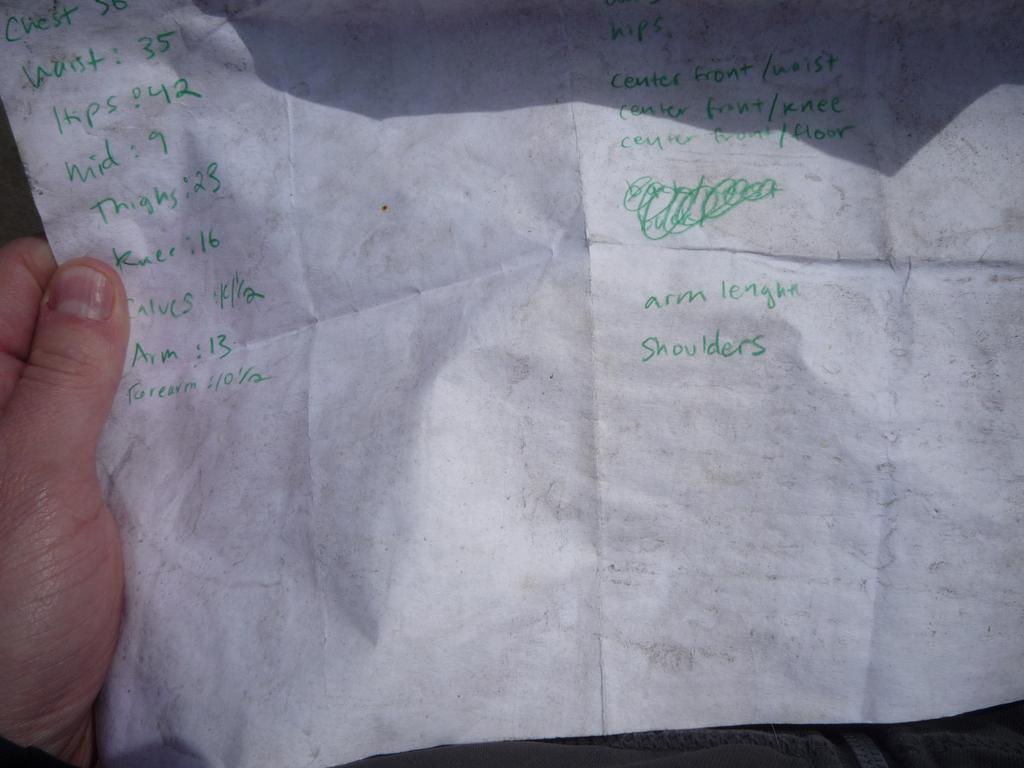 Chest 36
Waist: 35
Hips: 42
mid: 9
Thighs: 23
Knee: 16
Calves
Arm: 13
Forearm: 10 1/2
hips
center front/waist
center front/knee
center front/floor
arm lenght
Shoulders